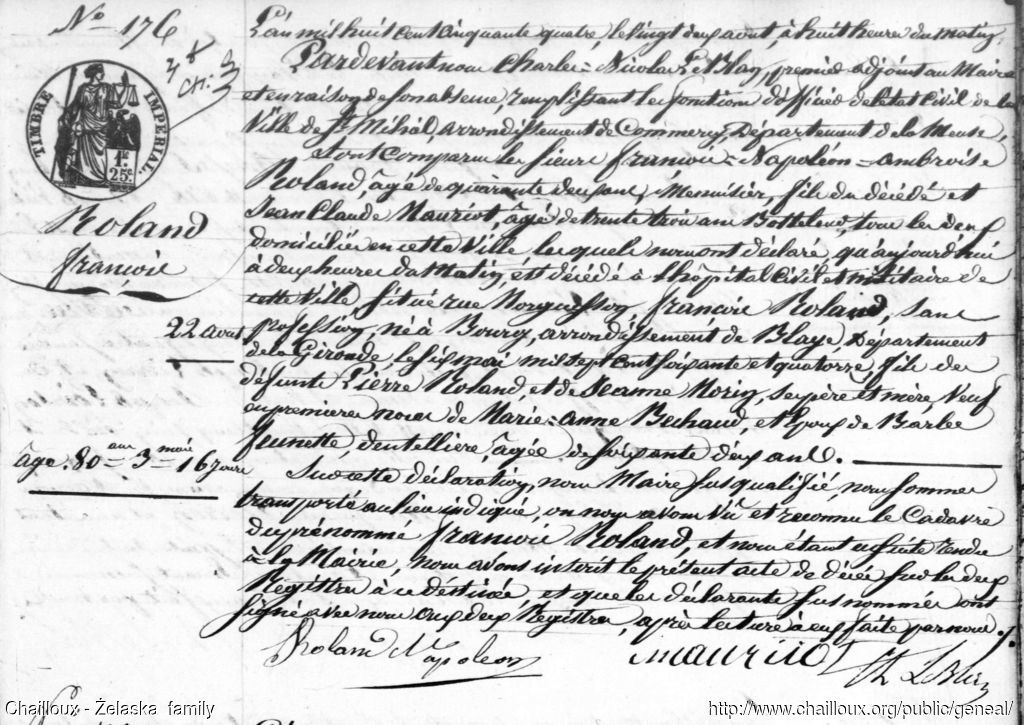 N° 176
TIMBRE IMPERIAL
1F
25c.
Roland
françois
22 août
âge: 80 ans 3 mois 16 jours
L'an mil huit cent cinquante quatre, le vingt deux août, à huit heures du matin,
Pardevant nous Charles=Nicolas LeBlan, premier adjoint au Maire
et en raison de son absence, remplissant les fonctions d'officier de l'état civil de la
Ville de St Mihiel, arrondissement de Commercy, Département de la Meuse,
sont comparus les sieurs françois=Napoléon=ambroise
Roland, âgé de quarante deux ans, Menuisier, fils du décédé et
Jean Claude Mauriot, âgé de trente trois ans Botteleur, tous les deux
domiciliés en cette Ville, lesquels nous ont déclaré, qu'aujourd'hui
à deux heures du Matin, est décédé à l'hôpital Civil et militaire de
cette Ville, situé rue françois Roland, sans
profession, né à Bourg, arrondissement de Blaye, Département
de la Gironde, le six mai mil sept cent soixante et quatorze, fils des
défunts Pierre Roland, et de Jeanne Morin, ses père et mère, Veuf
en premières noces de Marie=Anne Bechaud, et Epoux de Barbe
Jeunette, dentellière, âgée de soixante deux ans.
Sur cette déclaration, nous Maire susqualifié, nous sommes
transporté au lieu indiqué, où nous avons vu et reconnu le Cadavre
du prénommé françois Roland, et nous étant ensuite rendu
à la Mairie, nous avons inscrit le présent acte de décès sur les deux
Régistres à ce destinés, et que les déclarants susnommés ont
signé avec nous aux deux Régistres, après lecture à eux faite par nous.
Roland Napoleon mauriot Ch LeBlan
Chailloux - Żelaska family
http://www.chailloux.org/public/geneal/